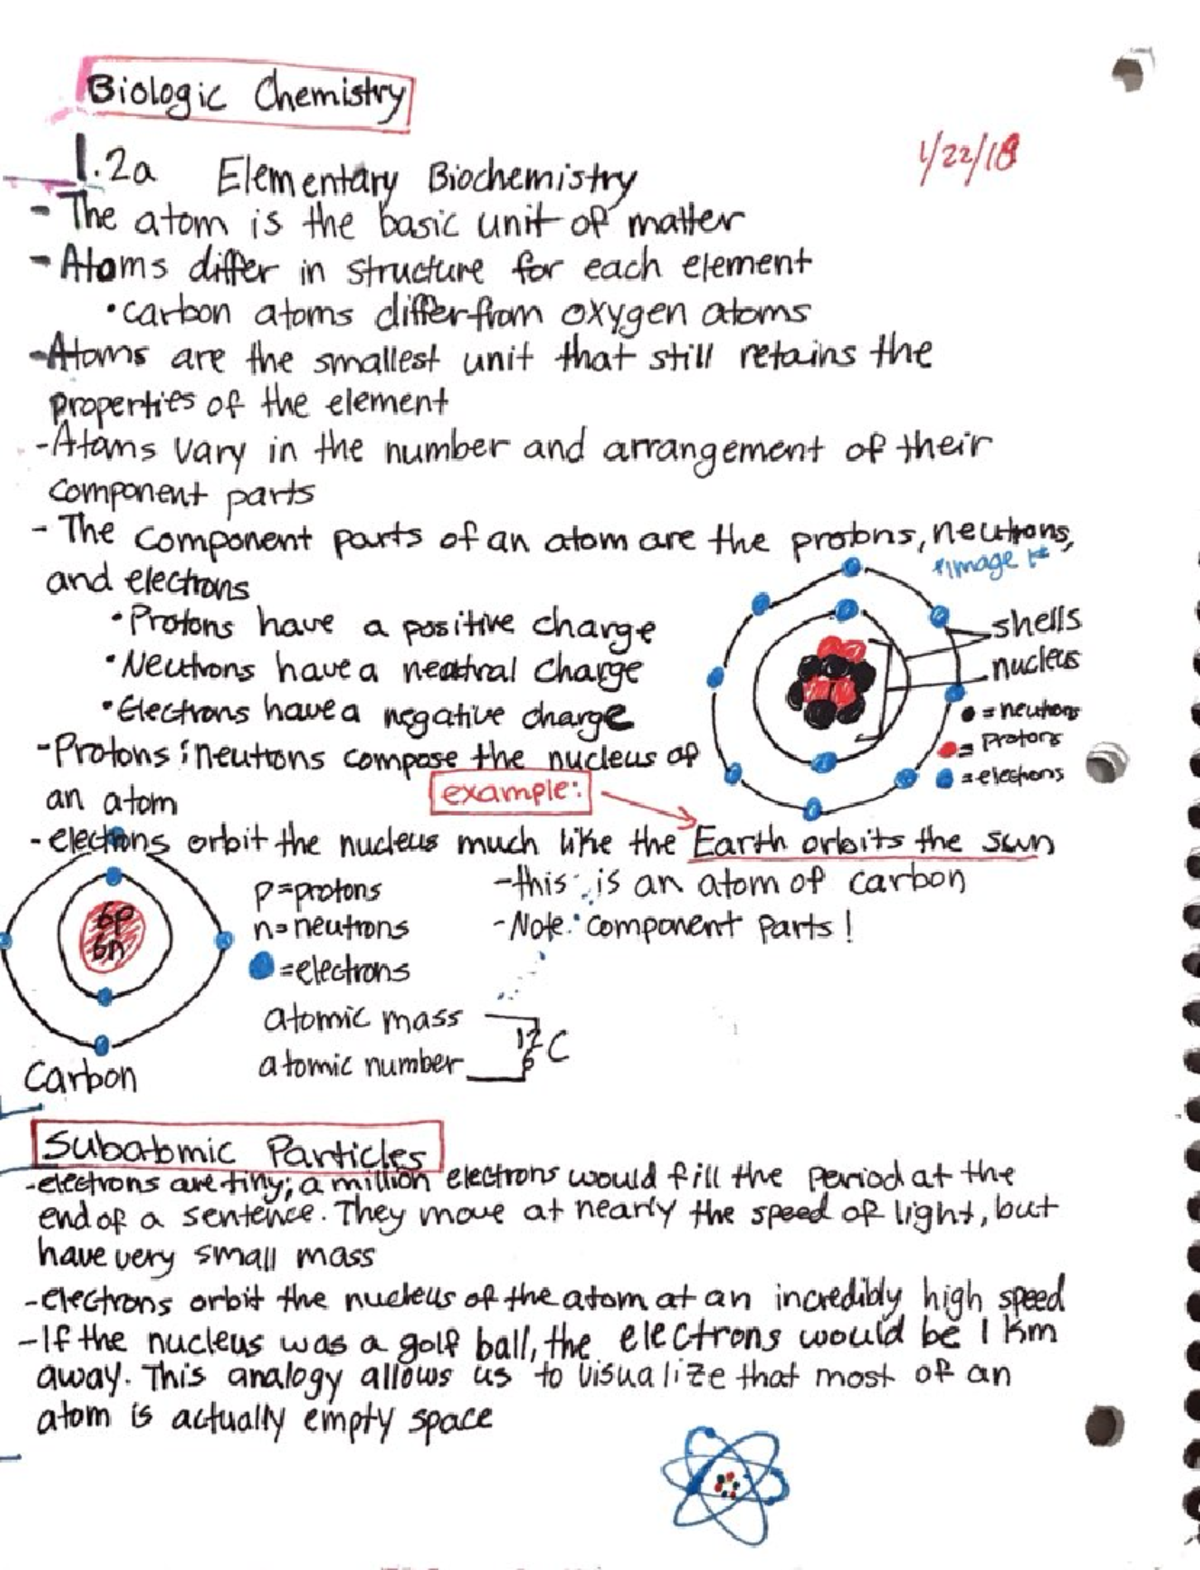 Biologic Chemistry
1/22/18
1.2a Elementary Biochemistry
- The atom is the basic unit of matter
- Atoms differ in structure for each element
• carbon atoms differ from oxygen atoms
- Atoms are the smallest unit that still retains the
properties of the element
- Atoms vary in the number and arrangement of their
component parts
- The component parts of an atom are the protons, neutrons,
and electrons
*image
• Protons have a positive charge
• Neutrons have a neutral charge
• Electrons have a negative charge
shells
nucleus
= neutrons
= Protons
= electrons
- Protons & neutrons compose the nucleus of
an atom
example:
- electrons orbit the nucleus much like the Earth orbits the sun
6p
6n
Carbon
p=protons
n=neutrons
=electrons
- this is an atom of carbon
- Note: component parts!
atomic mass
atomic number
12
6
C
Subatomic Particles
- electrons are tiny; a million electrons would fill the period at the
end of a sentence. They move at nearly the speed of light, but
have very small mass
- electrons orbit the nucleus of the atom at an incredibly high speed
- If the nucleus was a golf ball, the electrons would be 1 Km
away. This analogy allows us to visualize that most of an
atom is actually empty space